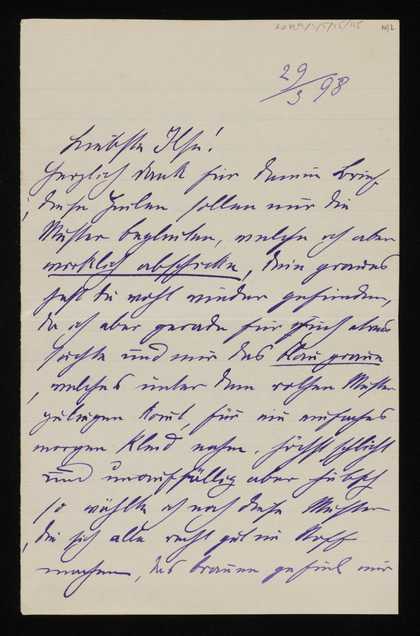 29/3 98
Liebste Ilse!
Herzlich Dank für deinen Brief,
diese Zeilen sollen nur die
Muster begleiten, welche ich aber
wirklich abschicke, dein graues
hast du wohl wieder gefunden,
da ich aber gerade für mich etwas
suchte und mir das blau graue
, welches unter dem rothen Muster
, für ein einfaches
morgen Kleid nahm, höchst schlicht
und unauffällig aber hübsch
so wählte ich noch diese Muster
, die sich alle recht gut im Stoff
machen, das braune gefiel mir